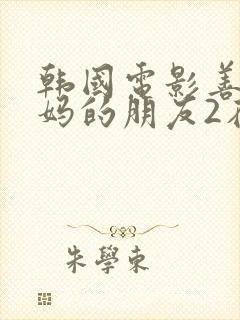 韩國電影善
妈的朋友2
朱學東